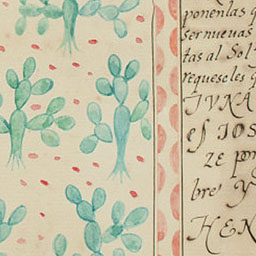 ponenlas q
ser nueuas
tas al Sol
requeseles q
TVNA
es Ios
ze por
bre y
HEN